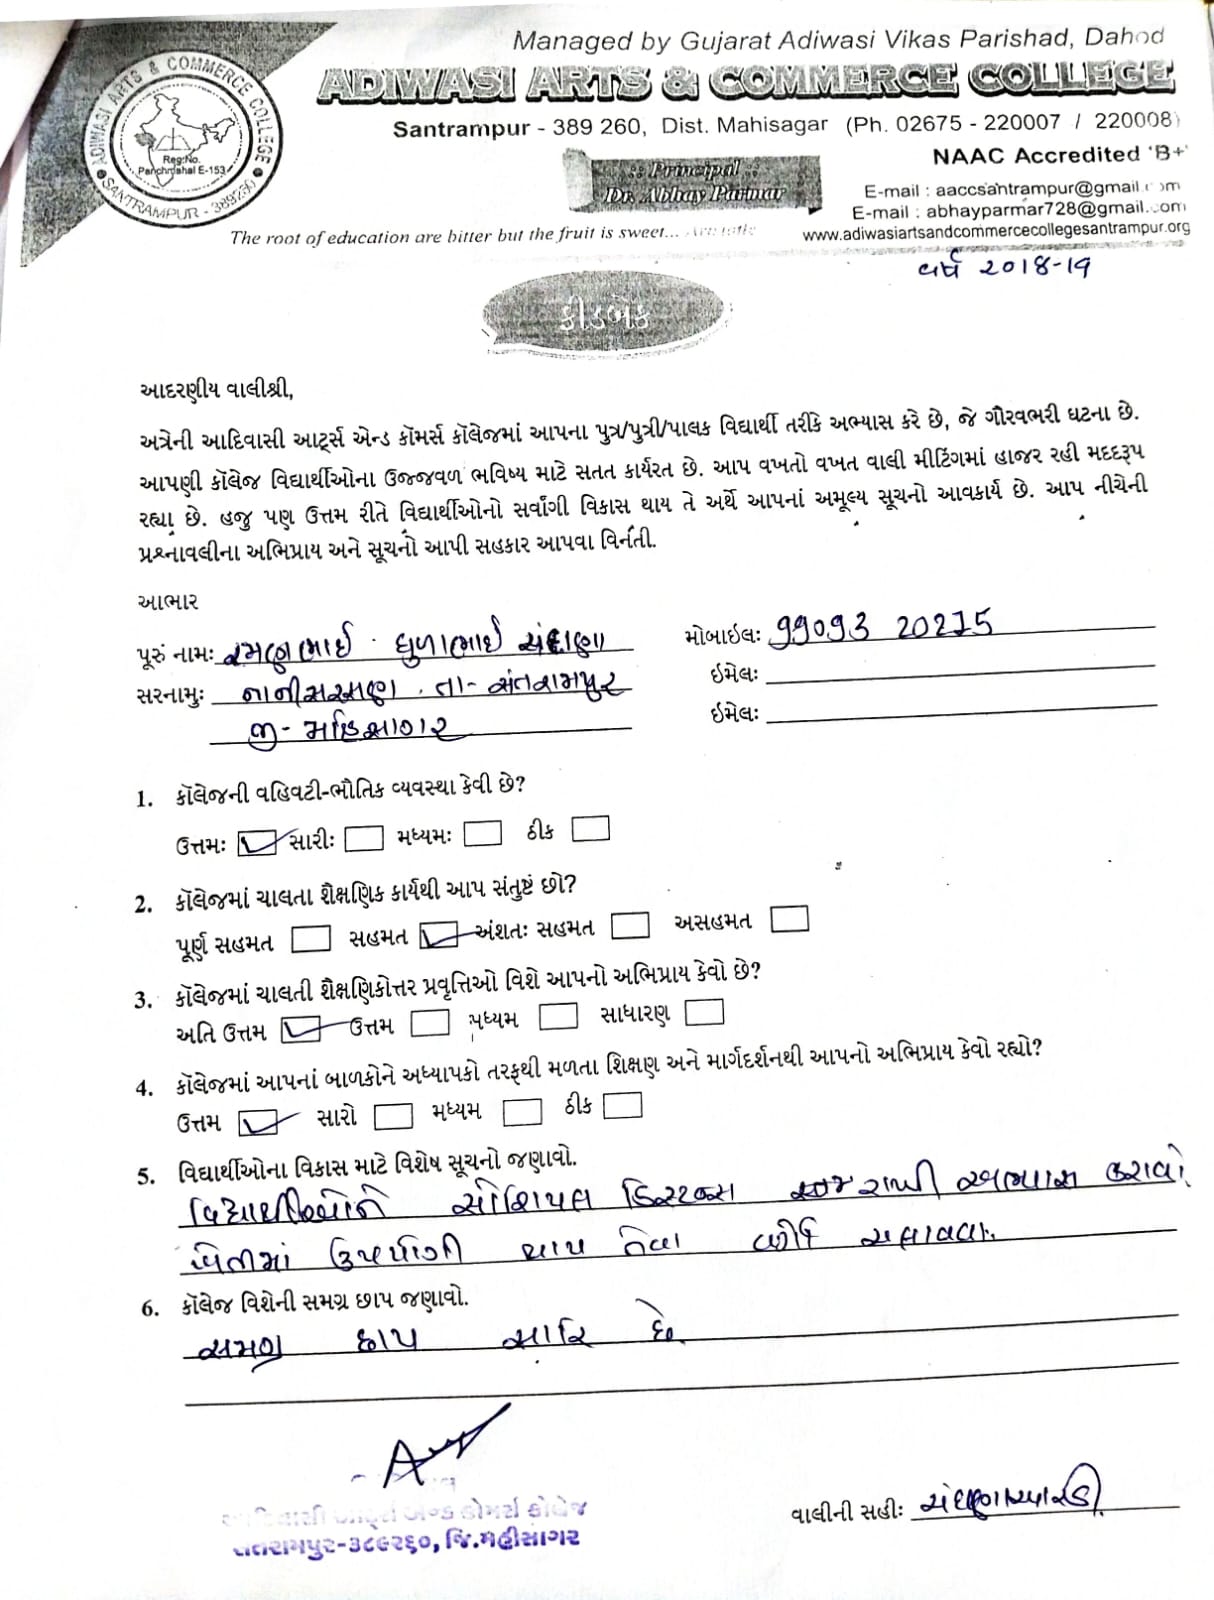 Managed by Gujarat Adiwasi Vikas Parishad, Dahod
ADIWASI ARTS & COMMERCE COLLEGE
Santrampur - 389 260, Dist. Mahisagar (Ph. 02675 - 220007 / 220008)
ADIWASI ARTS & COMMERCE COLLEGE
SANTRAMPUR - 389260
Reg.No.
Panchmahal E-153
:: Principal ::
Dr. Abhay Parmar
NAAC Accredited 'B+'
E-mail : aaccsantrampur@gmail.com
E-mail : abhayparmar728@gmail.com
The root of education are bitter but the fruit is sweet...
www.adiwasiartsandcommercecollegesantrampur.org
વર્ષ ૨૦18-19
ફીડબેક
આદરણીય વાલીશ્રી,
અત્રેની આદિવાસી આર્ટ્સ એન્ડ કૉમર્સ કૉલેજમાં આપના પુત્ર/પુત્રી/પાલક વિદ્યાર્થી તરીકે અભ્યાસ કરે છે, જે ગૌરવભરી ઘટના છે.
આપણી કૉલેજ વિદ્યાર્થીઓના ઉજ્જવળ ભવિષ્ય માટે સતત કાર્યરત છે. આપ વખતો વખત વાલી મીટિંગમાં હાજર રહી મદદરૂપ
રહ્યા છે. હજુ પણ ઉત્તમ રીતે વિદ્યાર્થીઓનો સર્વાંગી વિકાસ થાય તે અર્થે આપનાં અમૂલ્ય સૂચનો આવકાર્ય છે. આપ નીચેની
પ્રશ્નાવલીના અભિપ્રાય અને સૂચનો આપી સહકાર આપવા વિનંતી.
આભાર
પૂરું નામઃ રમણભાઈ ધુળાભાઈ ચંદાણા
મોબાઇલઃ 99093 20275
સરનામુઃ નાનીસરસણ. તા- સંતરામપુર
ઇમેલઃ
જી- મહિસાગર
ઇમેલઃ
1. કૉલેજની વહિવટી-ભૌતિક વ્યવસ્થા કેવી છે?
ઉત્તમઃ સારીઃ મધ્યમઃ ઠીક
2. કૉલેજમાં ચાલતા શૈક્ષણિક કાર્યથી આપ સંતુષ્ટ છો?
પૂર્ણ સહમત સહમત અંશતઃ સહમત અસહમત
3. કૉલેજમાં ચાલતી શૈક્ષણિકોત્તર પ્રવૃત્તિઓ વિશે આપનો અભિપ્રાય કેવો છે?
અતિ ઉત્તમ ઉત્તમ મધ્યમ સાધારણ
4. કૉલેજમાં આપનાં બાળકોને અધ્યાપકો તરફથી મળતા શિક્ષણ અને માર્ગદર્શનથી આપનો અભિપ્રાય કેવો રહ્યો?
ઉત્તમ સારો મધ્યમ ઠીક
5. વિદ્યાર્થીઓના વિકાસ માટે વિશેષ સૂચનો જણાવો.
વિદ્યાર્થીઓને સોશિયલ ડિસ્ટન્સ રાખી અભ્યાસ કરાવો
ખેતીમાં ઉપયોગી થાય તેવા કોર્ષ ચલાવવા.
6. કૉલેજ વિશેની સમગ્ર છાપ જણાવો.
સમગ્ર છાપ સારિ છે.
આદિવાસી આર્ટ્સ એન્ડ કોમર્સ કોલેજ
સંતરામપુર-૩૮૯૨૬૦, જિ.મહીસાગર
વાલીની સહીઃ